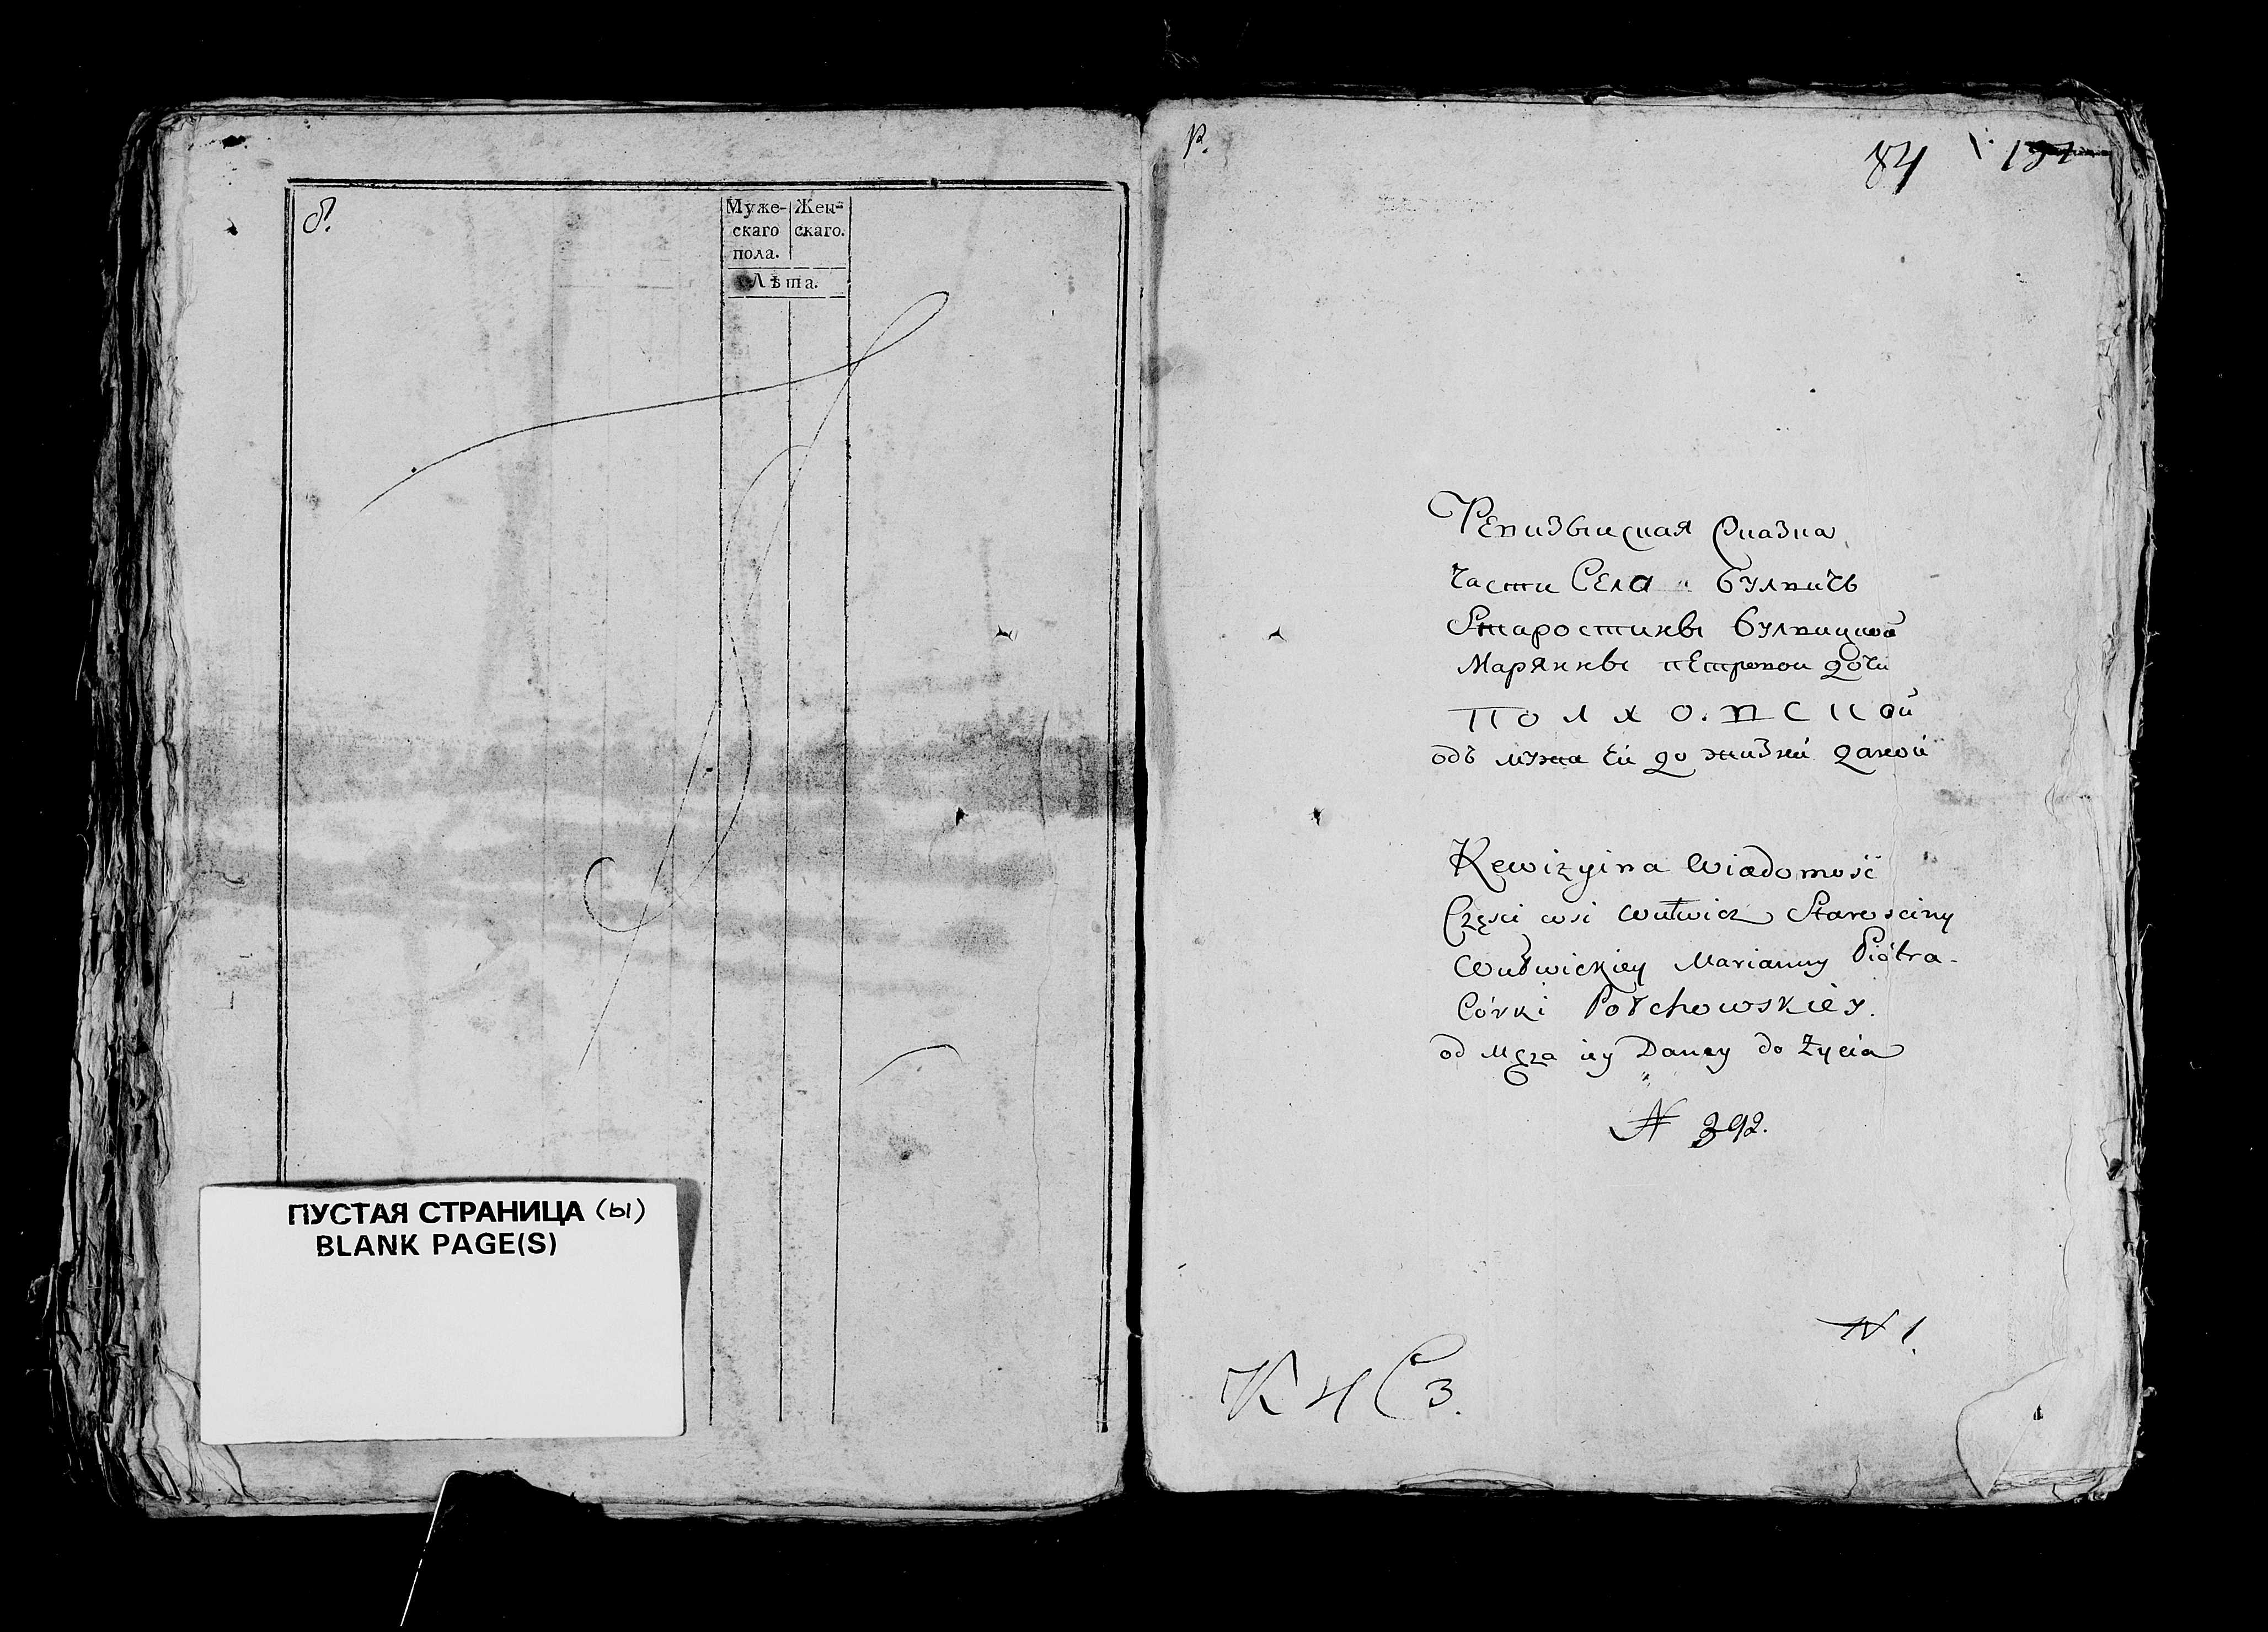 б.
Муже-
скаго
пола.
Жен-
скаго.
Лѣта.
ПУСТАЯ СТРАНИЦА (ы)
BLANK PAGE(S)
84
Ревизыиская Сказка
части Села Булвичъ
Старостинвы Булвицкой
Маряннвы петровой дочи
Полховской
одъ мужа ей до жизни даной
Rewizyina Wiadomość
Części wsi Wułwicz Starosciny
Wułwickiey Marianny Piótra-
Córki Połchowskiéy.
od Męża iey Daney do Życia
N 392.
N 1.
К Н С 3.